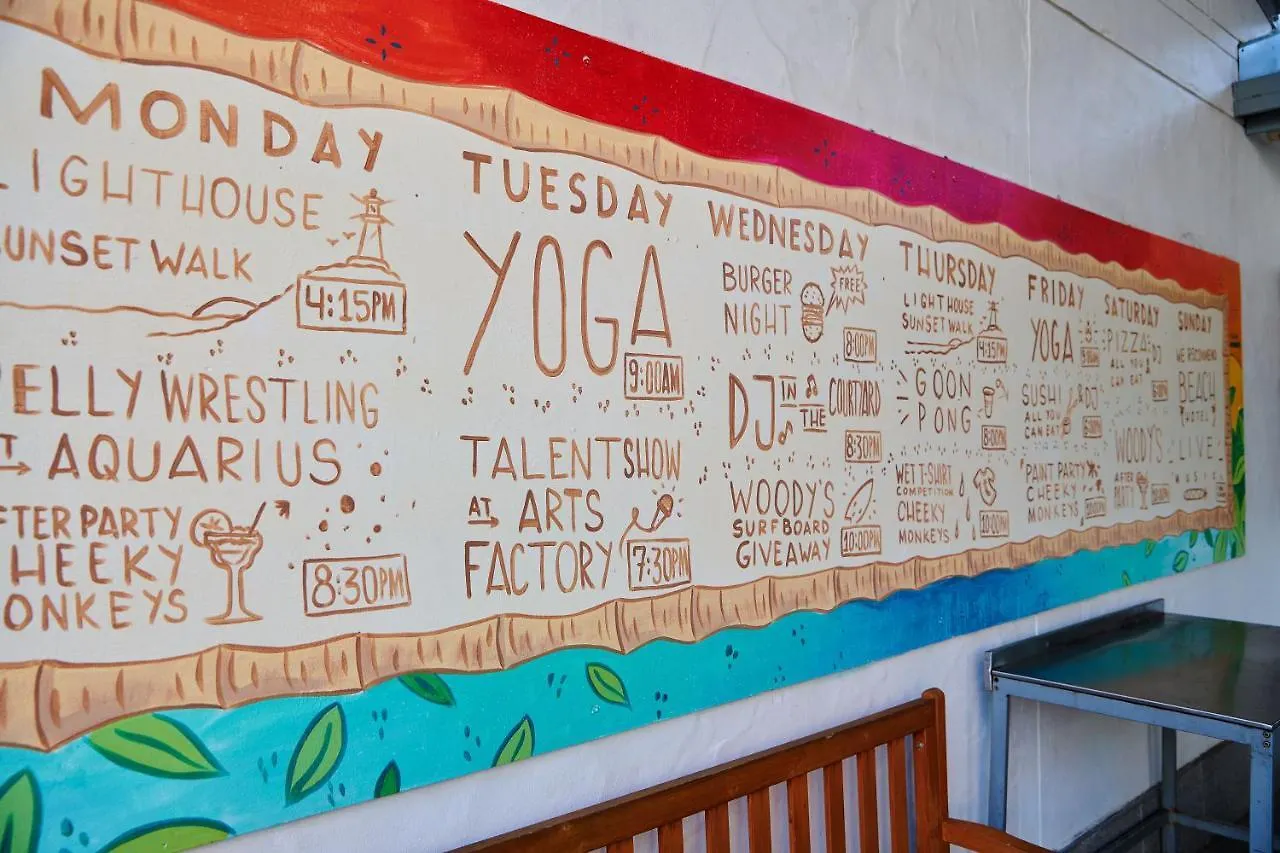 MONDAY
LIGHTHOUSE
SUNSET WALK
4:15PM
ELLY WRESTLING
AT AQUARIUS
AFTER PARTY
CHEEKY
MONKEYS
8:30PM
TUESDAY
YOGA
9:00AM
TALENT SHOW
AT ARTS
FACTORY
7:30PM
WEDNESDAY
BURGER
NIGHT
FREE
8:00PM
DJ IN THE COURTYARD
8:30PM
WOODY'S
SURFBOARD
GIVEAWAY
10:00PM
THURSDAY
LIGHTHOUSE
SUNSET WALK
4:15PM
GOON
PONG
8:00PM
WET T-SHIRT
COMPETITION
CHEEKY
MONKEYS
10:00PM
FRIDAY
YOGA
9:00AM
SUSHI & DJ
ALL YOU
CAN EAT
6:00PM
PAINT PARTY
CHEEKY
MONKEYS
10:00PM
SATURDAY
PIZZA & DJ
ALL YOU
CAN EAT
WOODY'S
AFTER
PARTY
10:00PM
SUNDAY
WE RECOMMEND
BEACH
HOTEL
LIVE
MUSIC